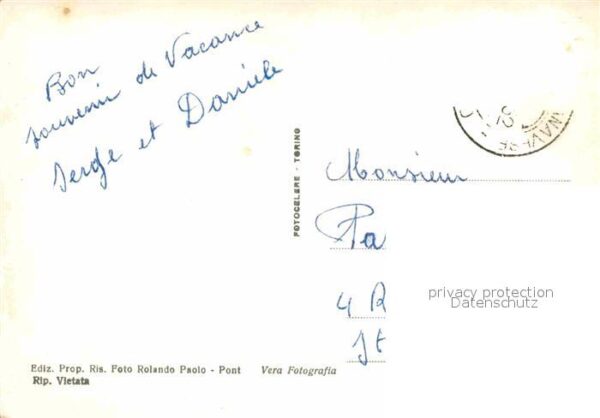 Bon
souvenir de Vacance
Serge et Danièle
FOTOCELERE - TORINO
Monsieur
Pa
4 R
St
privacy protection
Datenschutz
Ediz. Prop. Ris. Foto Rolando Paolo - Pont Vera Fotografia
Rip. Vietata